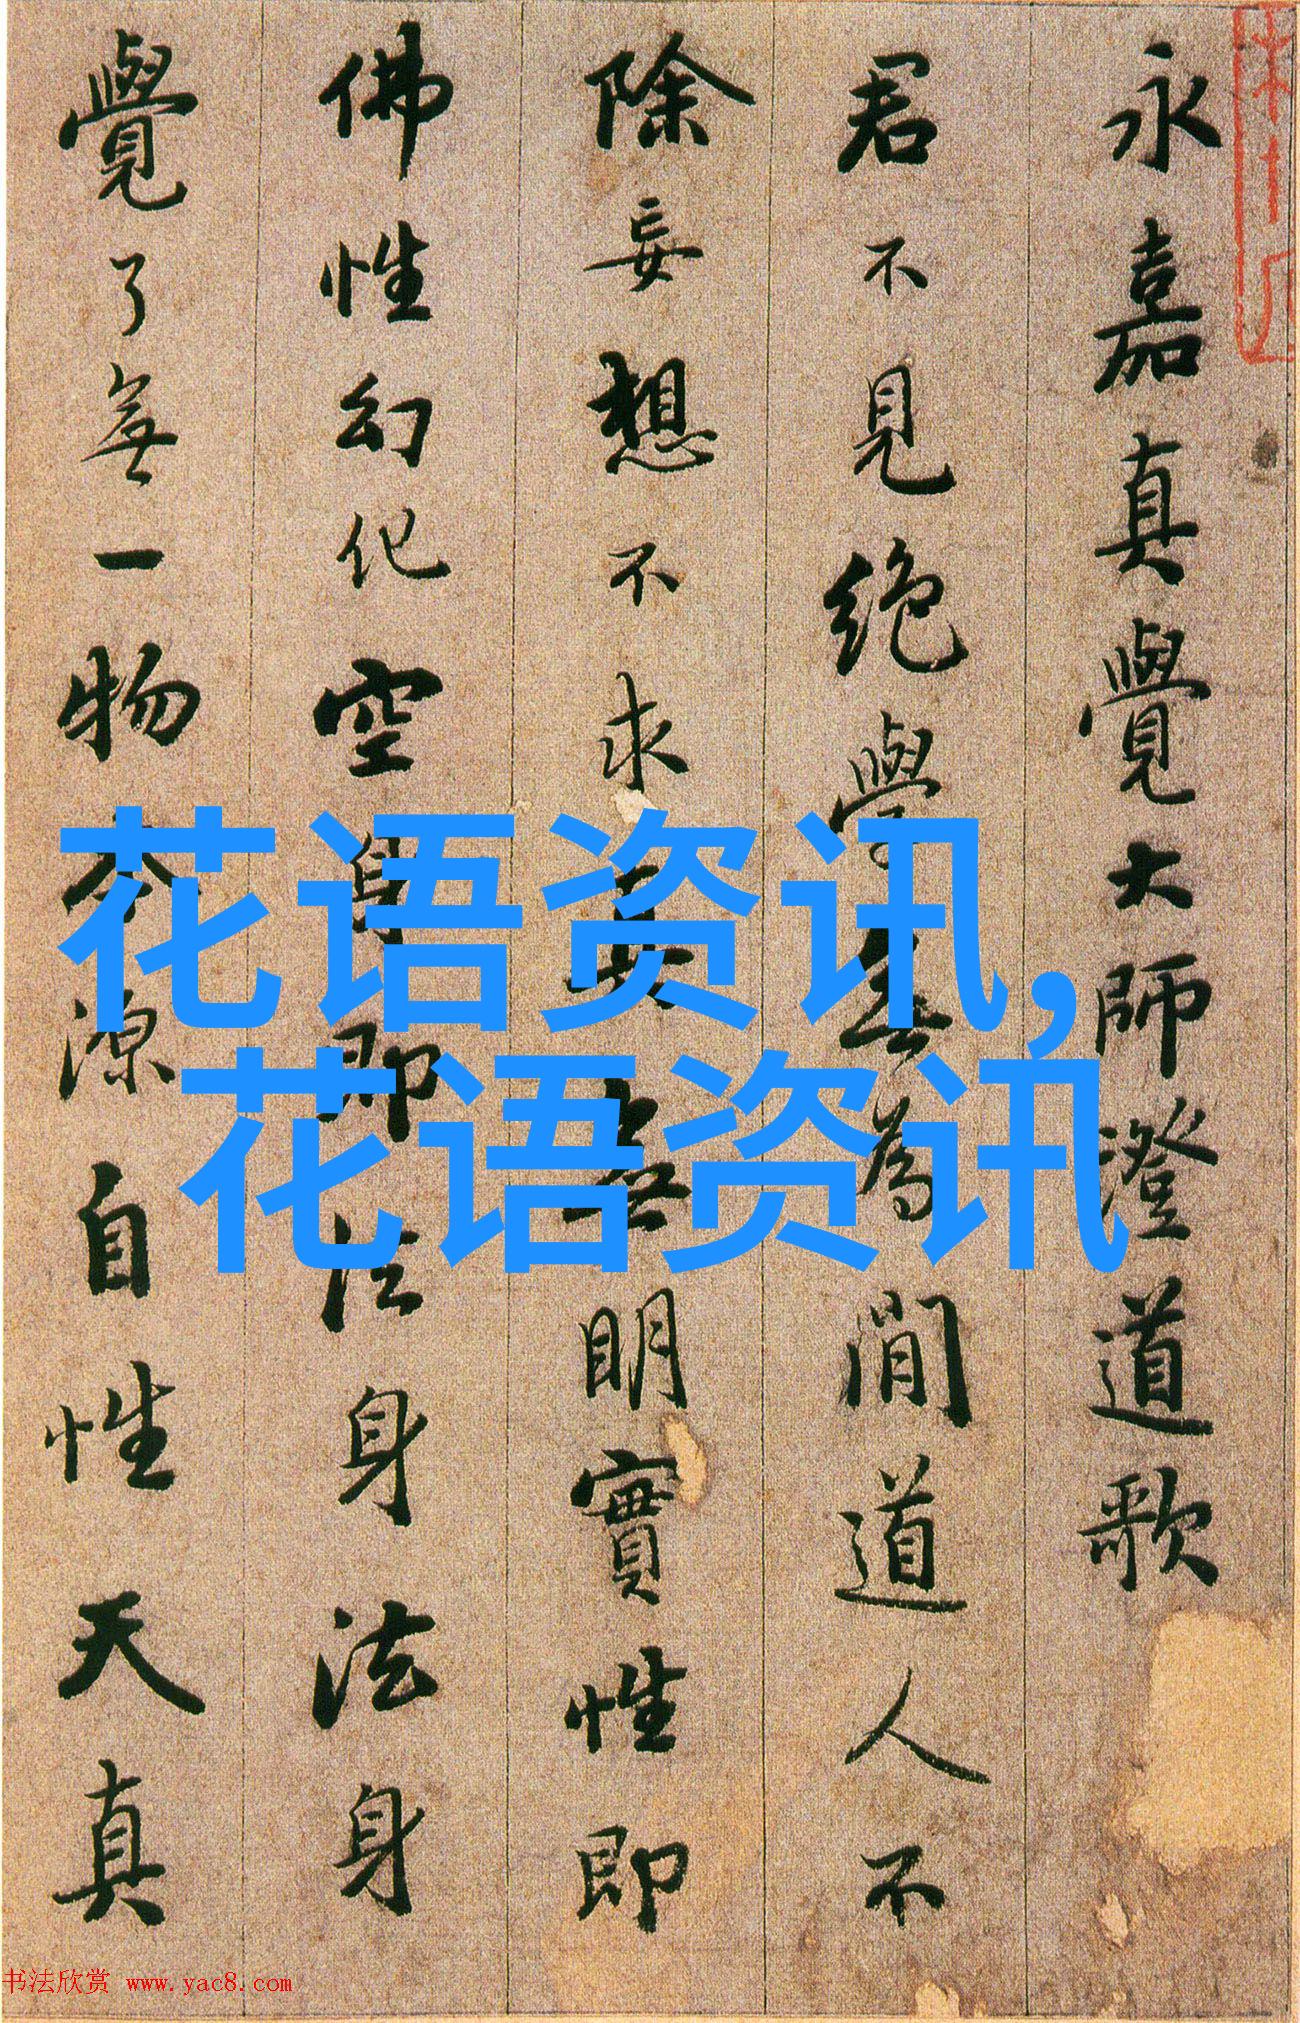 永嘉真覺大師澄道歌
君不見絶學無為閒道人不
除妄想不求真無明實性即
佛性幻化空身即法身法身
覺了無一物本源自性天真
花语资讯,
花语资讯
书法欣赏 www.yac8.com